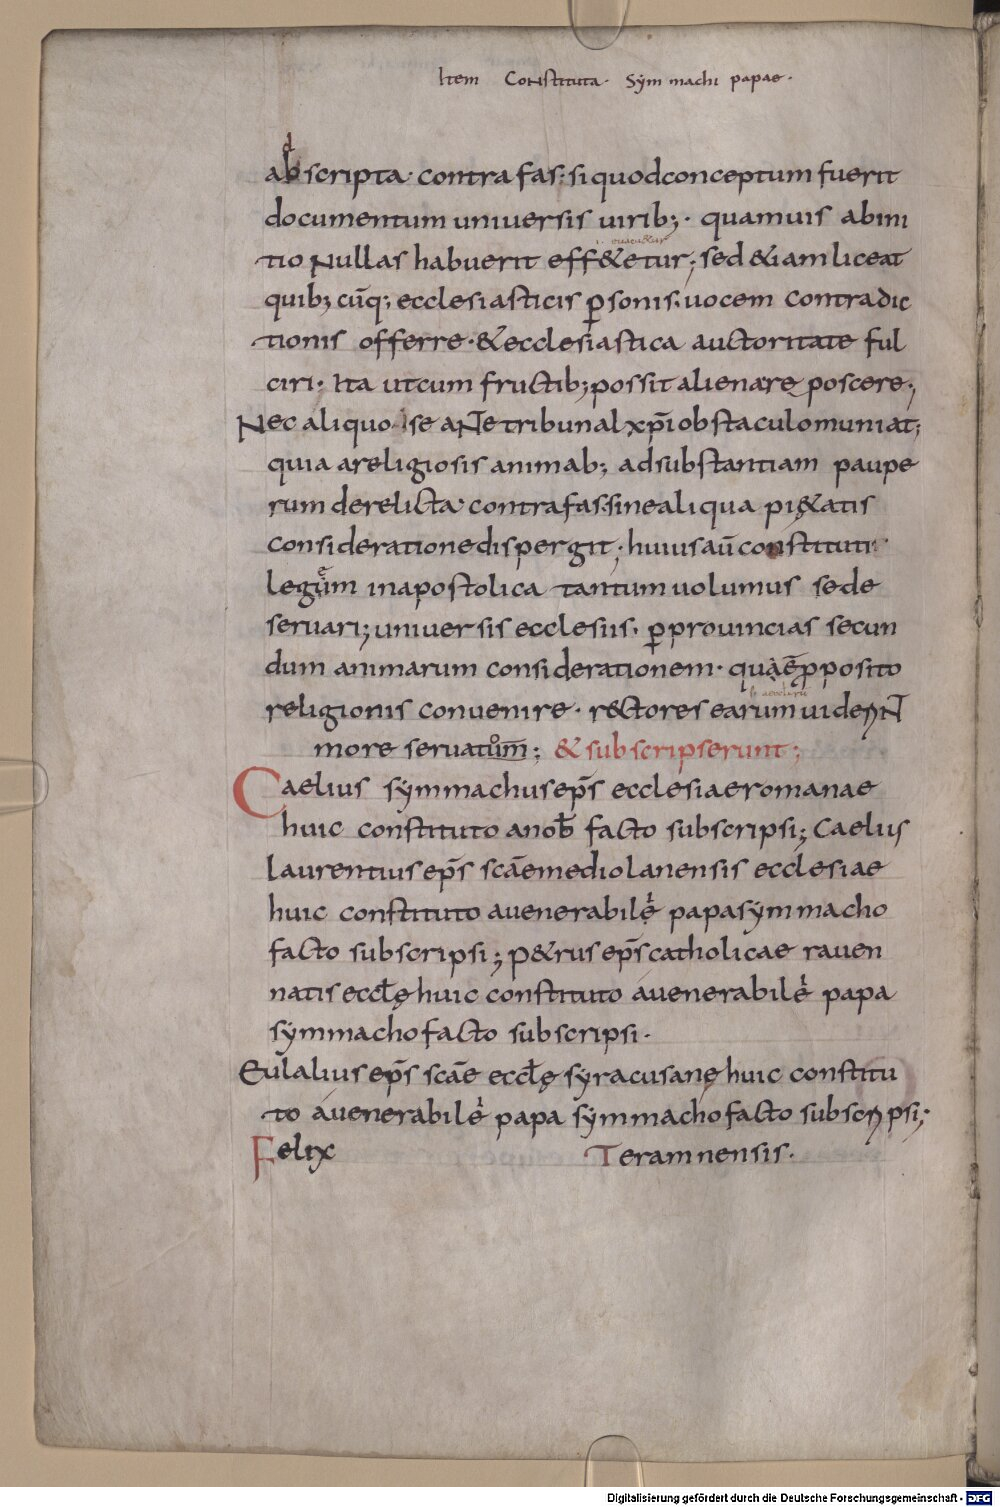 Item Constituta. Symmachi papae.
abscripta. contra fas. si quod conceptum fuerit
documentum uniuersis uirib; . quamuis ab ini
tio Nullas habuerit eff&etur; sed &iam liceat
quib; cūq; ecclesiasticis ꝑsonis. uocem contradic
tionis offerre. & ecclesiastica auctoritate ful
ciri. Ita ut cum fructib; possit alienare poscere;
Nec aliquo se aNte tribunal xp̄i obstaculo muniat;
quia a religiosis animab; ad substantiam paupe
rum derelicta contra fas. sine aliqua pi&atis
consideratione dispergit; huius aū constituti
legem in apostolica tantum uolumus sede
seruari; uniuersis ecclesiis. ꝑ prouincias secun
dum animarum considerationem. quā ꝓposito
religionis conuenire. rectores earum uiderNt
more seruatum; & subscripserunt;
Caelius symmachus ep̄s ecclesiae romanae
huic constituto a nob̄ facto subscripsi; Caelius
laurentius ep̄s scāe mediolanensis ecclesiae
huic constituto a uenerabile papa symmacho
facto subscripsi; P&rus ep̄s catholicae rauen
natis eccl̄ę huic constituto a uenerabile papa
symmacho facto subscripsi.
Eul̄alius ep̄s scāe eccl̄ę syracusanę huic constitu
to a uenerabile papa symmacho facto subscripsi;
Felix Teramnensis.
Digitalisierung gefördert durch die Deutsche Forschungsgemeinschaft - DFG